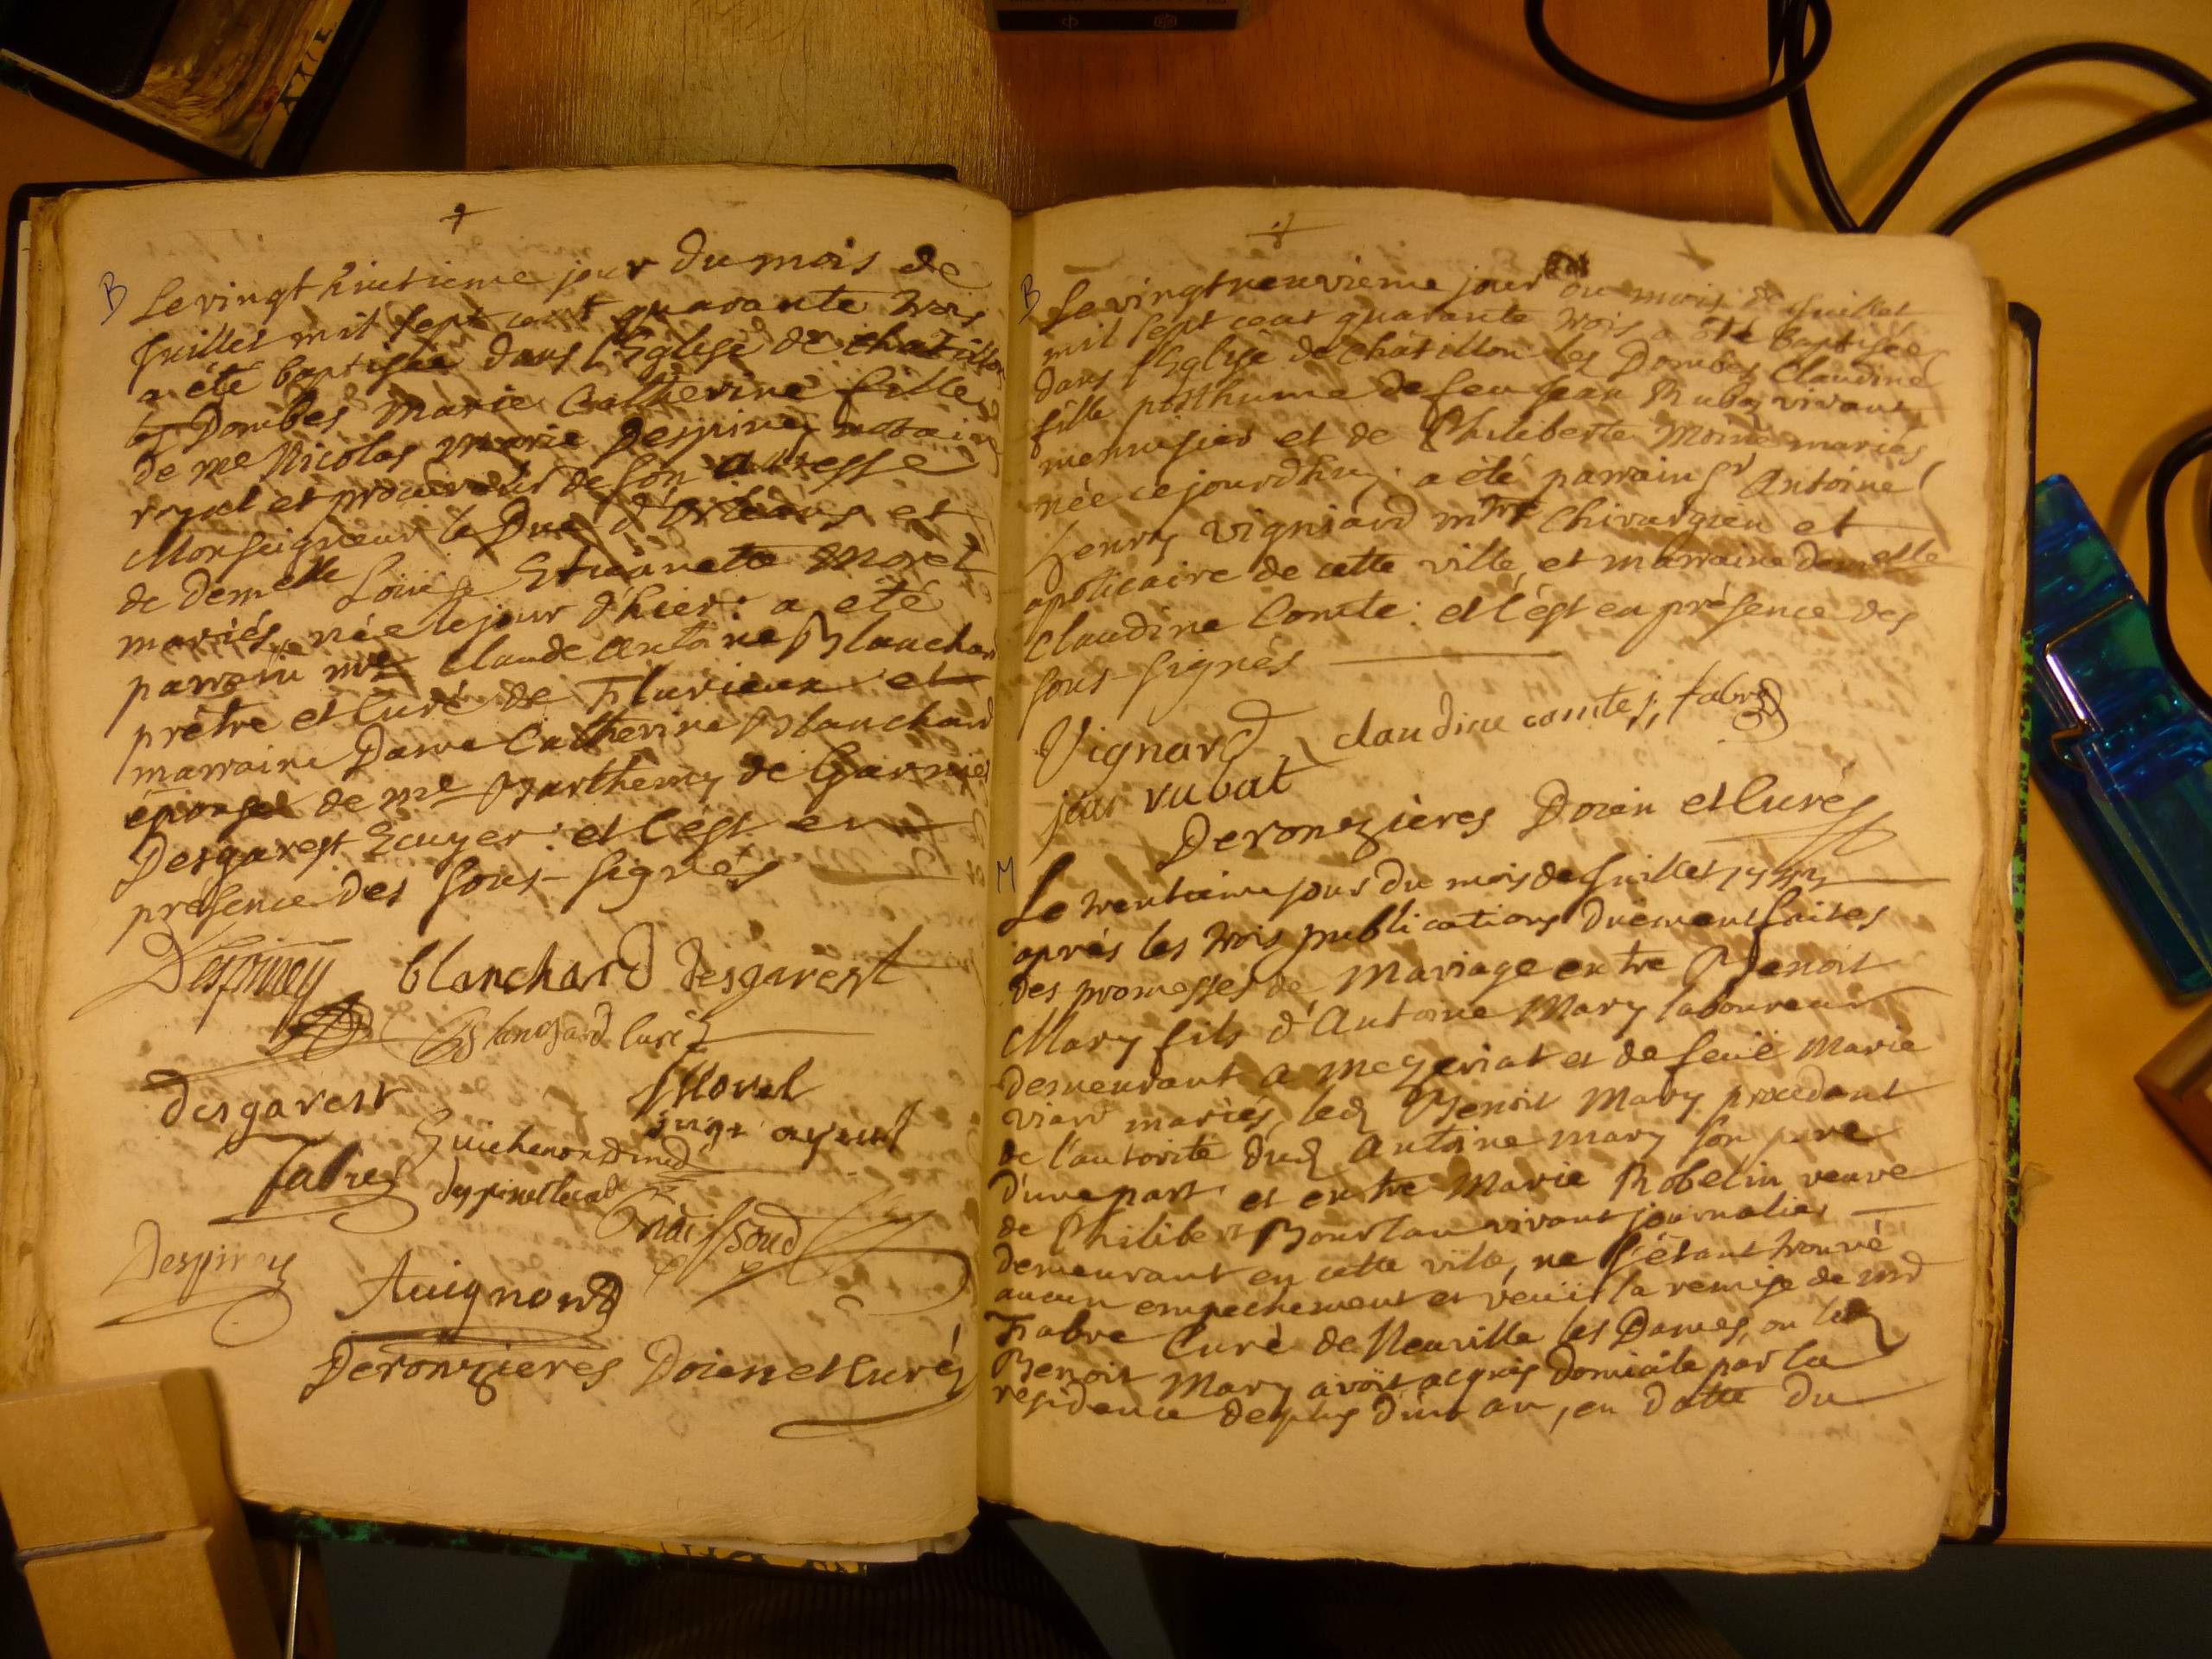 B
Le vingt huitieme jour du mois de
Juillet mil sept cent quarante trois
a été baptisée dans l'Eglise de chatillon
les Dombes Marie Catherine fille
de me Nicolas Marie Despiney notaire
royal et procureur de son altesse
Monseigneur le Duc d'Orléans et
de demelle Loüise Etiennette Morel
mariés, née le jour d'hier: a été
parrain mre Claude Antoine Blanchard
prêtre et Curé de Flurieux et
marraine Dame Catherine Blanchard
épouse de me Barthemy de Garnier
Desgarest Ecuyer: et c'est en
présence des sous-signés
Despiney blanchard desgarest
Blanchard curé
desgarest Morel
juge ayeul
Guichenon
fabre
Despiney
Auignond
Deronzieres Doien et Curé
B
Le vingt neuvieme jour du mois de Juillet
mil sept cent quarante trois a été baptisée
dans l'Eglise de Châtillon les Dombes Claudine
fille posthume de feu Jean Rubat vivant
menuisier et de Philiberte Moine mariés,
née ce jourd'huy: a été parrain sr Antoine
henry Vigniard mtre Chirurgien et
apoticaire de cette ville, et marraine demelle
Claudine Comte: et c'est en présence des
sous-signés
Vignard claudine comte j. fabre
jean rubat
Deronzières Doien et Curé
M
Le trentieme jour du mois de Juillet 1743
après les trois publications duement faites
des promesses de Mariage entre Benoit
Mary fils d'Antoine Mary laboureur
demeurant a Mezeriat et de feuë Marie
Viard mariés, led Benoit Mary procedant
de l'autorité dud Antoine mary son pere
d'une part: et entre Marie Robelin veuve
de Philibert Bourlan vivant journalier
demeurant en cette ville, ne s'étant trouvé
aucun empechement et veüe la remise de mr
Fabre Curé de Neuville les Dames, ou led
Benoit Mary avoit acquis domicile par la
residence de plus d'un an, en datte du